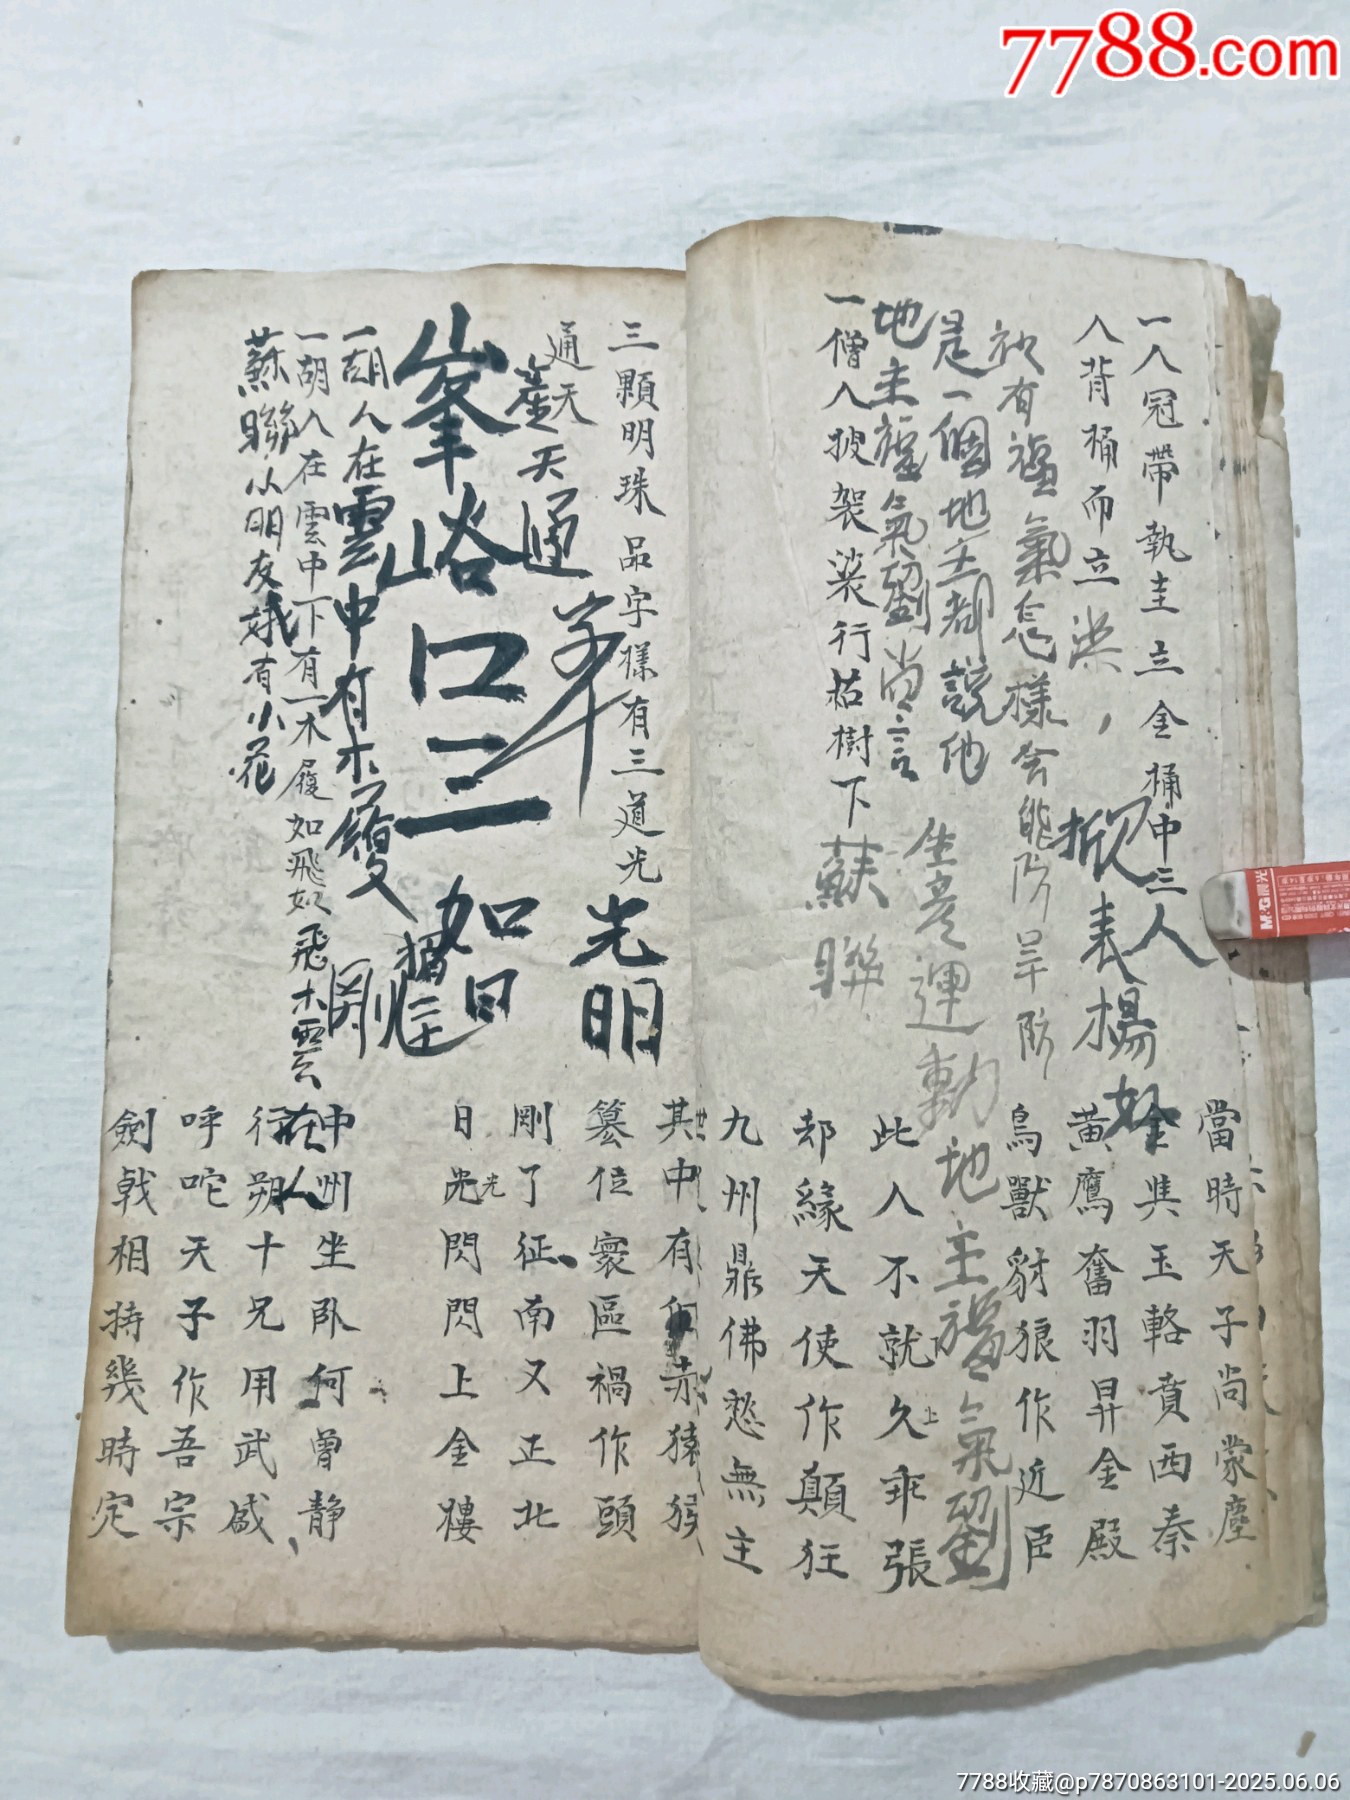 7788.com
一人冠帶執圭立金桶中三人
人背桶而立
當時天子尚蒙塵
金輿玉輅賁西秦
黃鷹奮羽昇金殿
鳥獸豺狼作近臣
掀表揚
故有福氣怎樣会能防旱防
是一個地主都說他
生產運動地主福氣劉
地主福氣劉尚言
一僧人披袈裟行枯樹下
蘇聯
此人不就久乖張
却緣天使作顛狂
九州鼎佛愁無主
三顆明珠品字樣有三道光
光明
其中有個赤猿猴
篡位寰區禍作頭
剛了征南又正北
日光閃閃上金樓
通天
産天通
峯峪口三
如日
一胡人在雲中有木履
一胡人在雲中下有一木履如飛
蘇聯以朋友
有小花
中州坐卧何曾靜
行朔十兄用武威
呼咜天子作吾宗
劍戟相持幾時定
M&G晨光
7788收藏@p7870863101-2025.06.06